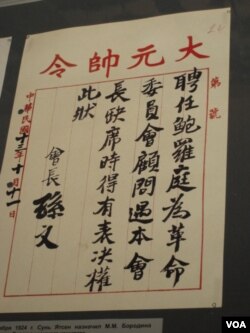 大元帥令
第 號
聘任鮑羅庭為革命
委員會顧問遇本會
長缺席時得有表決權
此狀
會長 孫文
中華民國十三年十月十一日
ября 1924 г. Сунь Ятсен назначил М.М. Бородина
VOA